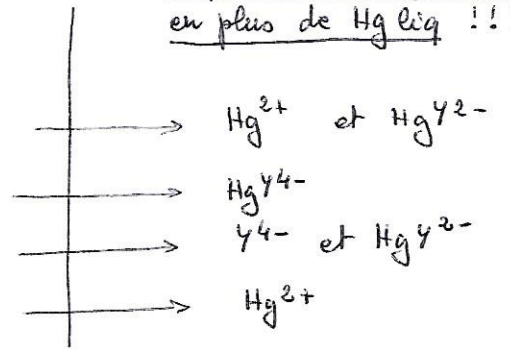 en plus de Hg liq !!
Hg²⁺ et HgY²⁻
HgY⁴⁻
Y⁴⁻ et HgY²⁻
Hg²⁺